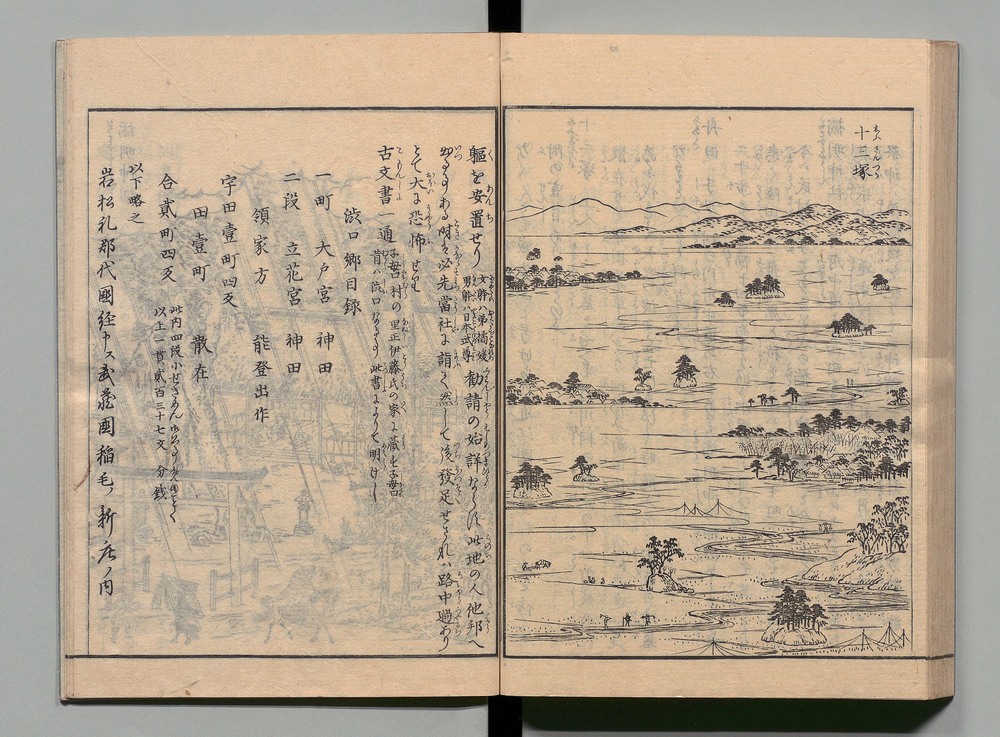 十三塚
軀を安置せり 女躰ハ弟橘媛 男躰ハ日本武尊 勧請の始詳ならす此地の人他邦へ
ゆく事ある時ハ必先當社に詣て然して後發足せされハ路中過あり
とて大に恐怖せり
古文書一通 子母口村の里正伊藤氏の家に蔵す子母口 昔ハ渋口なる事此書によりて明けし
渋口郷目録
一町 大戸宮 神田
二段 立花宮 神田
領家方 能登出作
字田壹町四反
田壹町 散在
合貳町四反 此内四段小 以上一貫貳百三十七文 分銭
以下略之
岩松礼部代國経申ス武蔵國稲毛ノ新庄ノ内